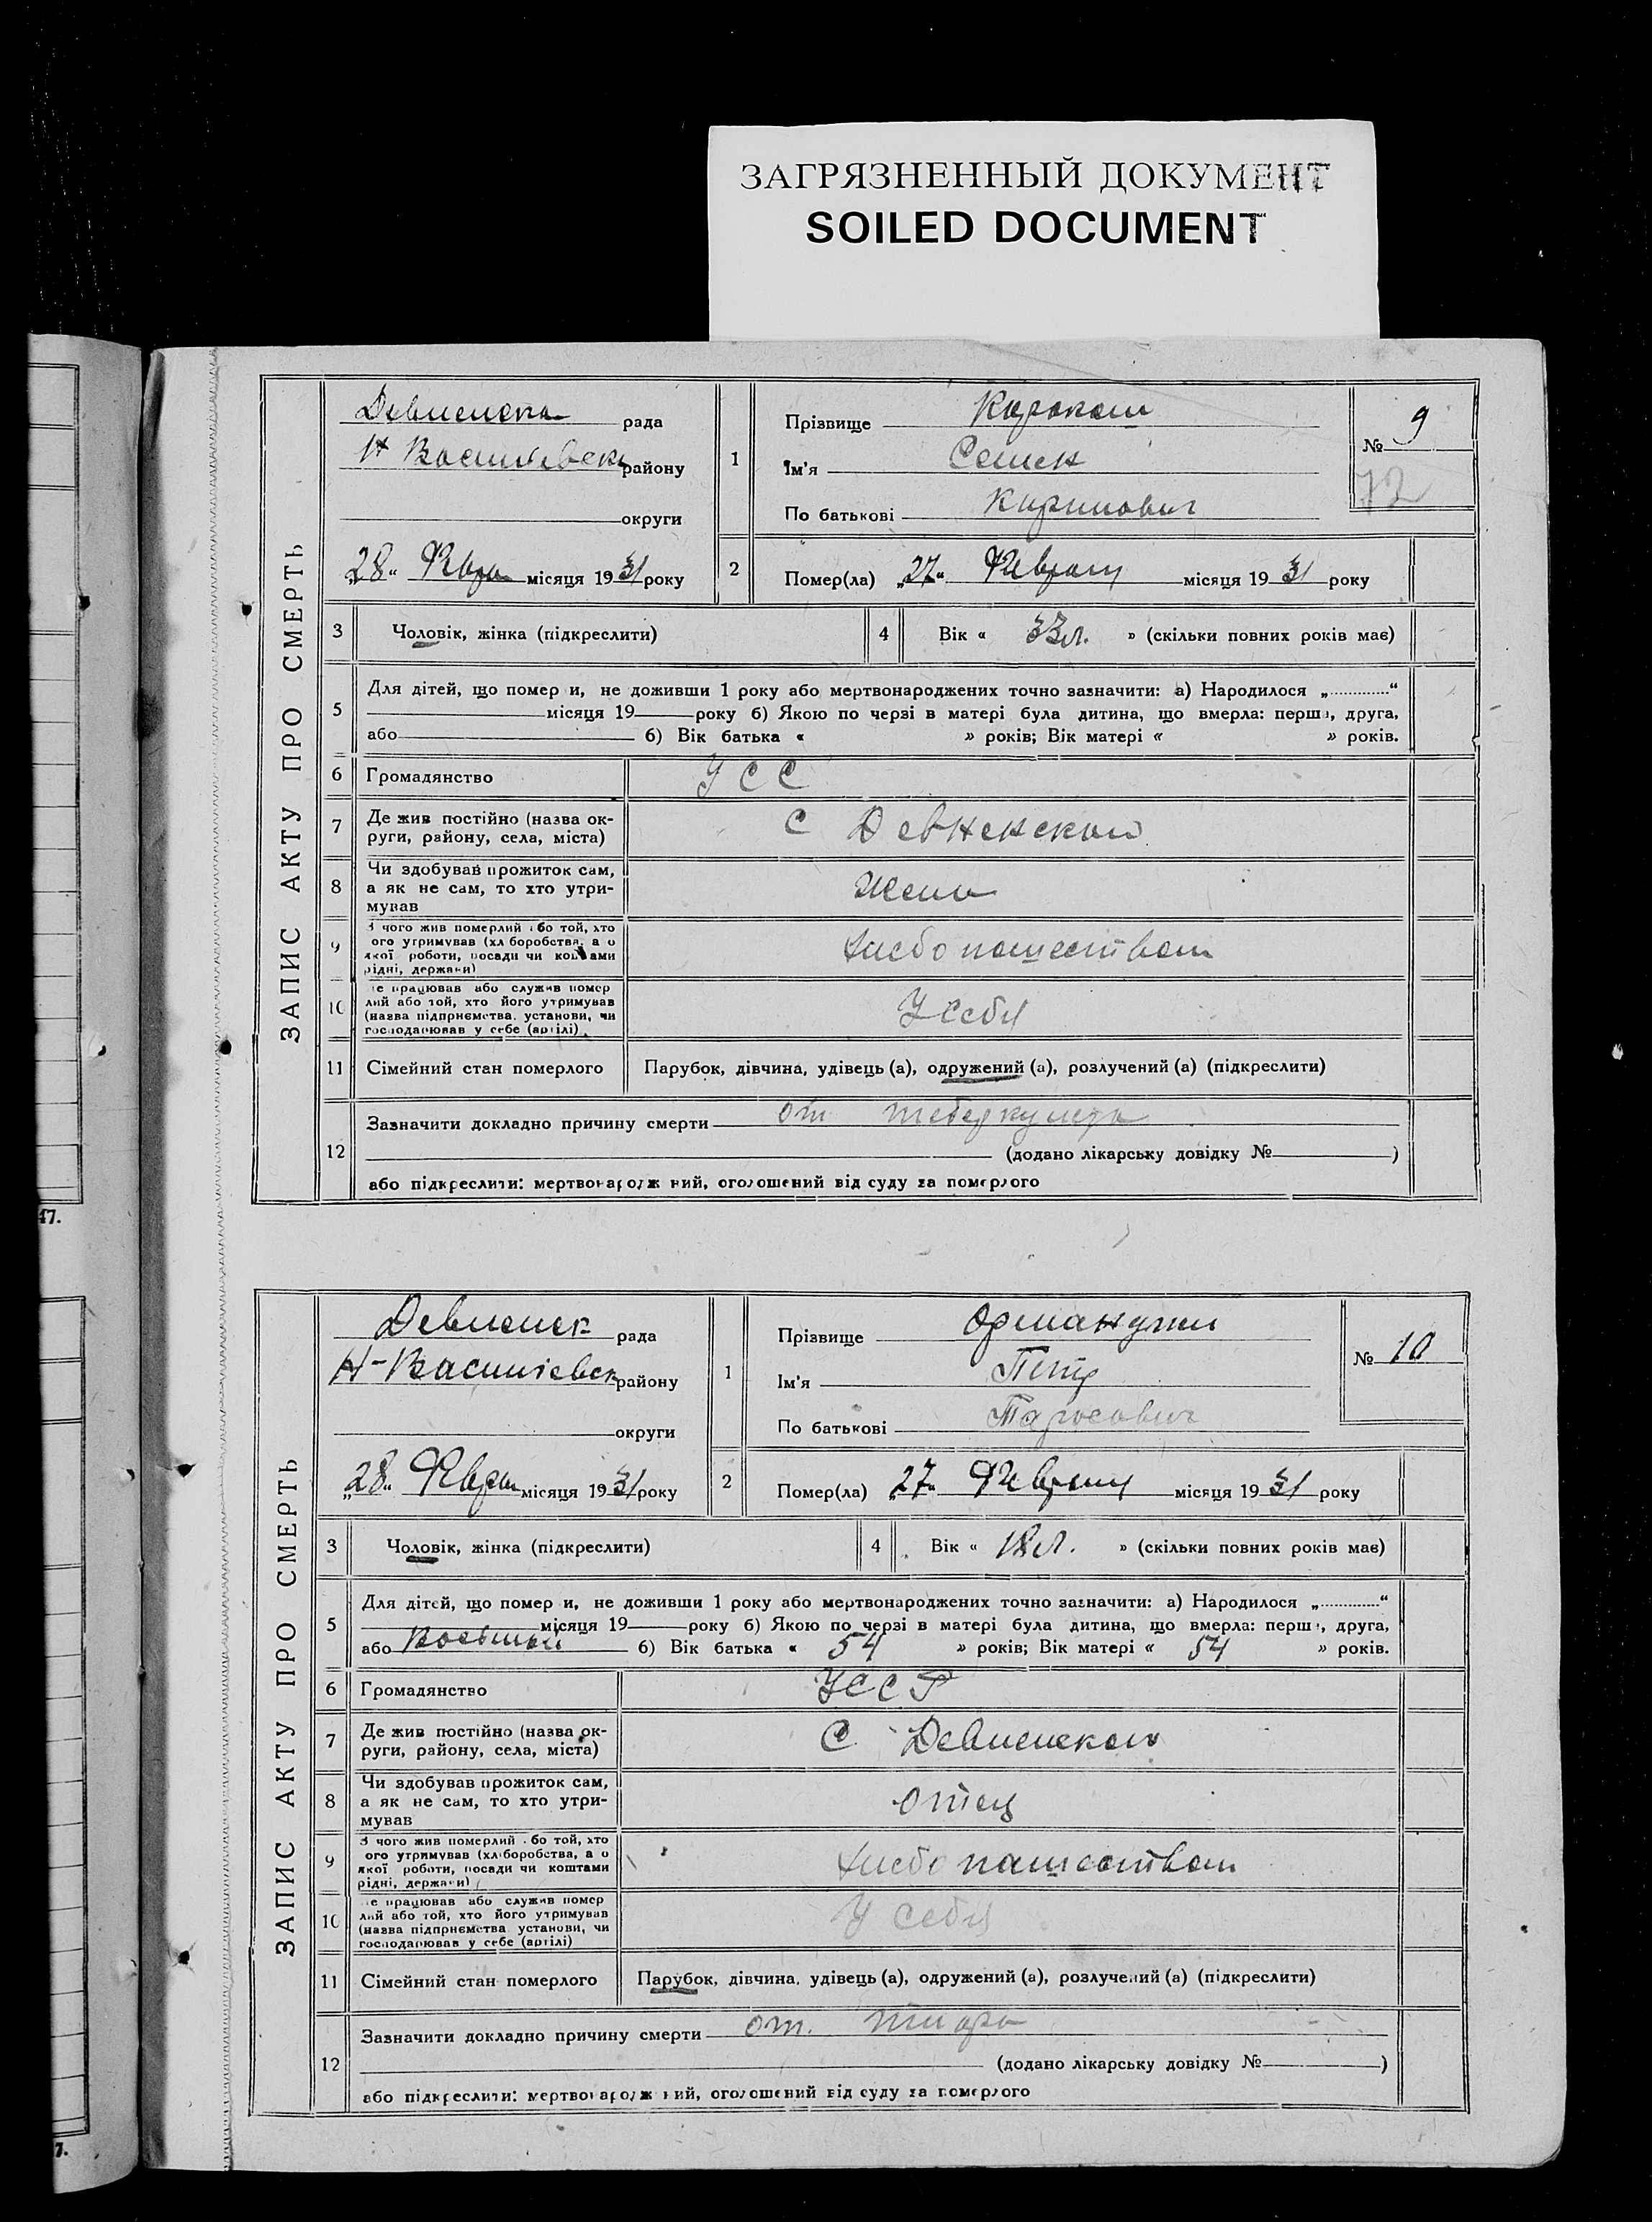 ЗАГРЯЗНЕННЫЙ ДОКУМЕНТ
SOILED DOCUMENT
ЗАПИС АКТУ ПРО СМЕРТЬ
рада
Н Василиевск району
округи
„28“ Февра місяця 1931 року
1
Прізвище
Ім'я Семен
По батькові Кирилович
№ 9
72
2
Помер(ла) „27“ Февраля місяця 1931 року
3 Чоловік, жінка (підкреслити)
4 Вік « 33 л. » (скільки повних років має)
5 Для дітей, що помер и, не доживши 1 року або мертвонароджених точно зазначити: а) Народилося „ “
місяця 19 року б) Якою по черзі в матері була дитина, що вмерла: перша, друга,
або б) Вік батька « » років; Вік матері « » років.
6 Громадянство УСС
7 Де жив постійно (назва ок-
руги, району, села, міста) С Девненском
8 Чи здобував прожиток сам,
а як не сам, то хто утри-
мував Жена
9 З чого жив померлий або той, хто
ого утримував (хл боробства, а о
якої роботи, посади чи коштами
рідні, держави) хлебопашеством
10 е працював або служив помер
лий або той, хто його утримував
(назва підприємства, установи, чи
господарював у себе (артілі) У себя
11 Сімейний стан померлого Парубок, дівчина, удівець (а), одружений (а), розлучений (а) (підкреслити)
12 Зазначити докладно причину смерти от
(додано лікарську довідку № )
або підкреслити: мертвонародж ний, оголошений від суду за померлого
ЗАПИС АКТУ ПРО СМЕРТЬ
рада
Н-Василиевск району
округи
„28“ Февра місяця 1931 року
1
Прізвище Орманужи
Ім'я Петр
По батькові Тарасович
№ 10
2
Помер(ла) „27“ Февраля місяця 1931 року
3 Чоловік, жінка (підкреслити)
4 Вік « 18 л. » (скільки повних років має)
5 Для дітей, що помер и, не доживши 1 року або мертвонароджених точно зазначити: а) Народилося „ “
місяця 19 року б) Якою по черзі в матері була дитина, що вмерла: перша, друга,
або Восьмой б) Вік батька « 54 » років; Вік матері « 54 » років.
6 Громадянство УССР
7 Де жив постійно (назва ок-
руги, району, села, міста) С. Девненском
8 Чи здобував прожиток сам,
а як не сам, то хто утри-
мував Отец
9 З чого жив померлий або той, хто
ого утримував (хл боробства, а о
якої роботи, посади чи коштами
рідні, держави) хлебопашеством
10 е працював або служив помер
лий або той, хто його утримував
(назва підприємства установи, чи
господарював у себе (артілі) У себя
11 Сімейний стан померлого Парубок, дівчина, удівець (а), одружений (а), розлучений (а) (підкреслити)
12 Зазначити докладно причину смерти от.
(додано лікарську довідку № )
або підкреслити: мертвонародж ний, оголошений від суду за померлого
47.
7.